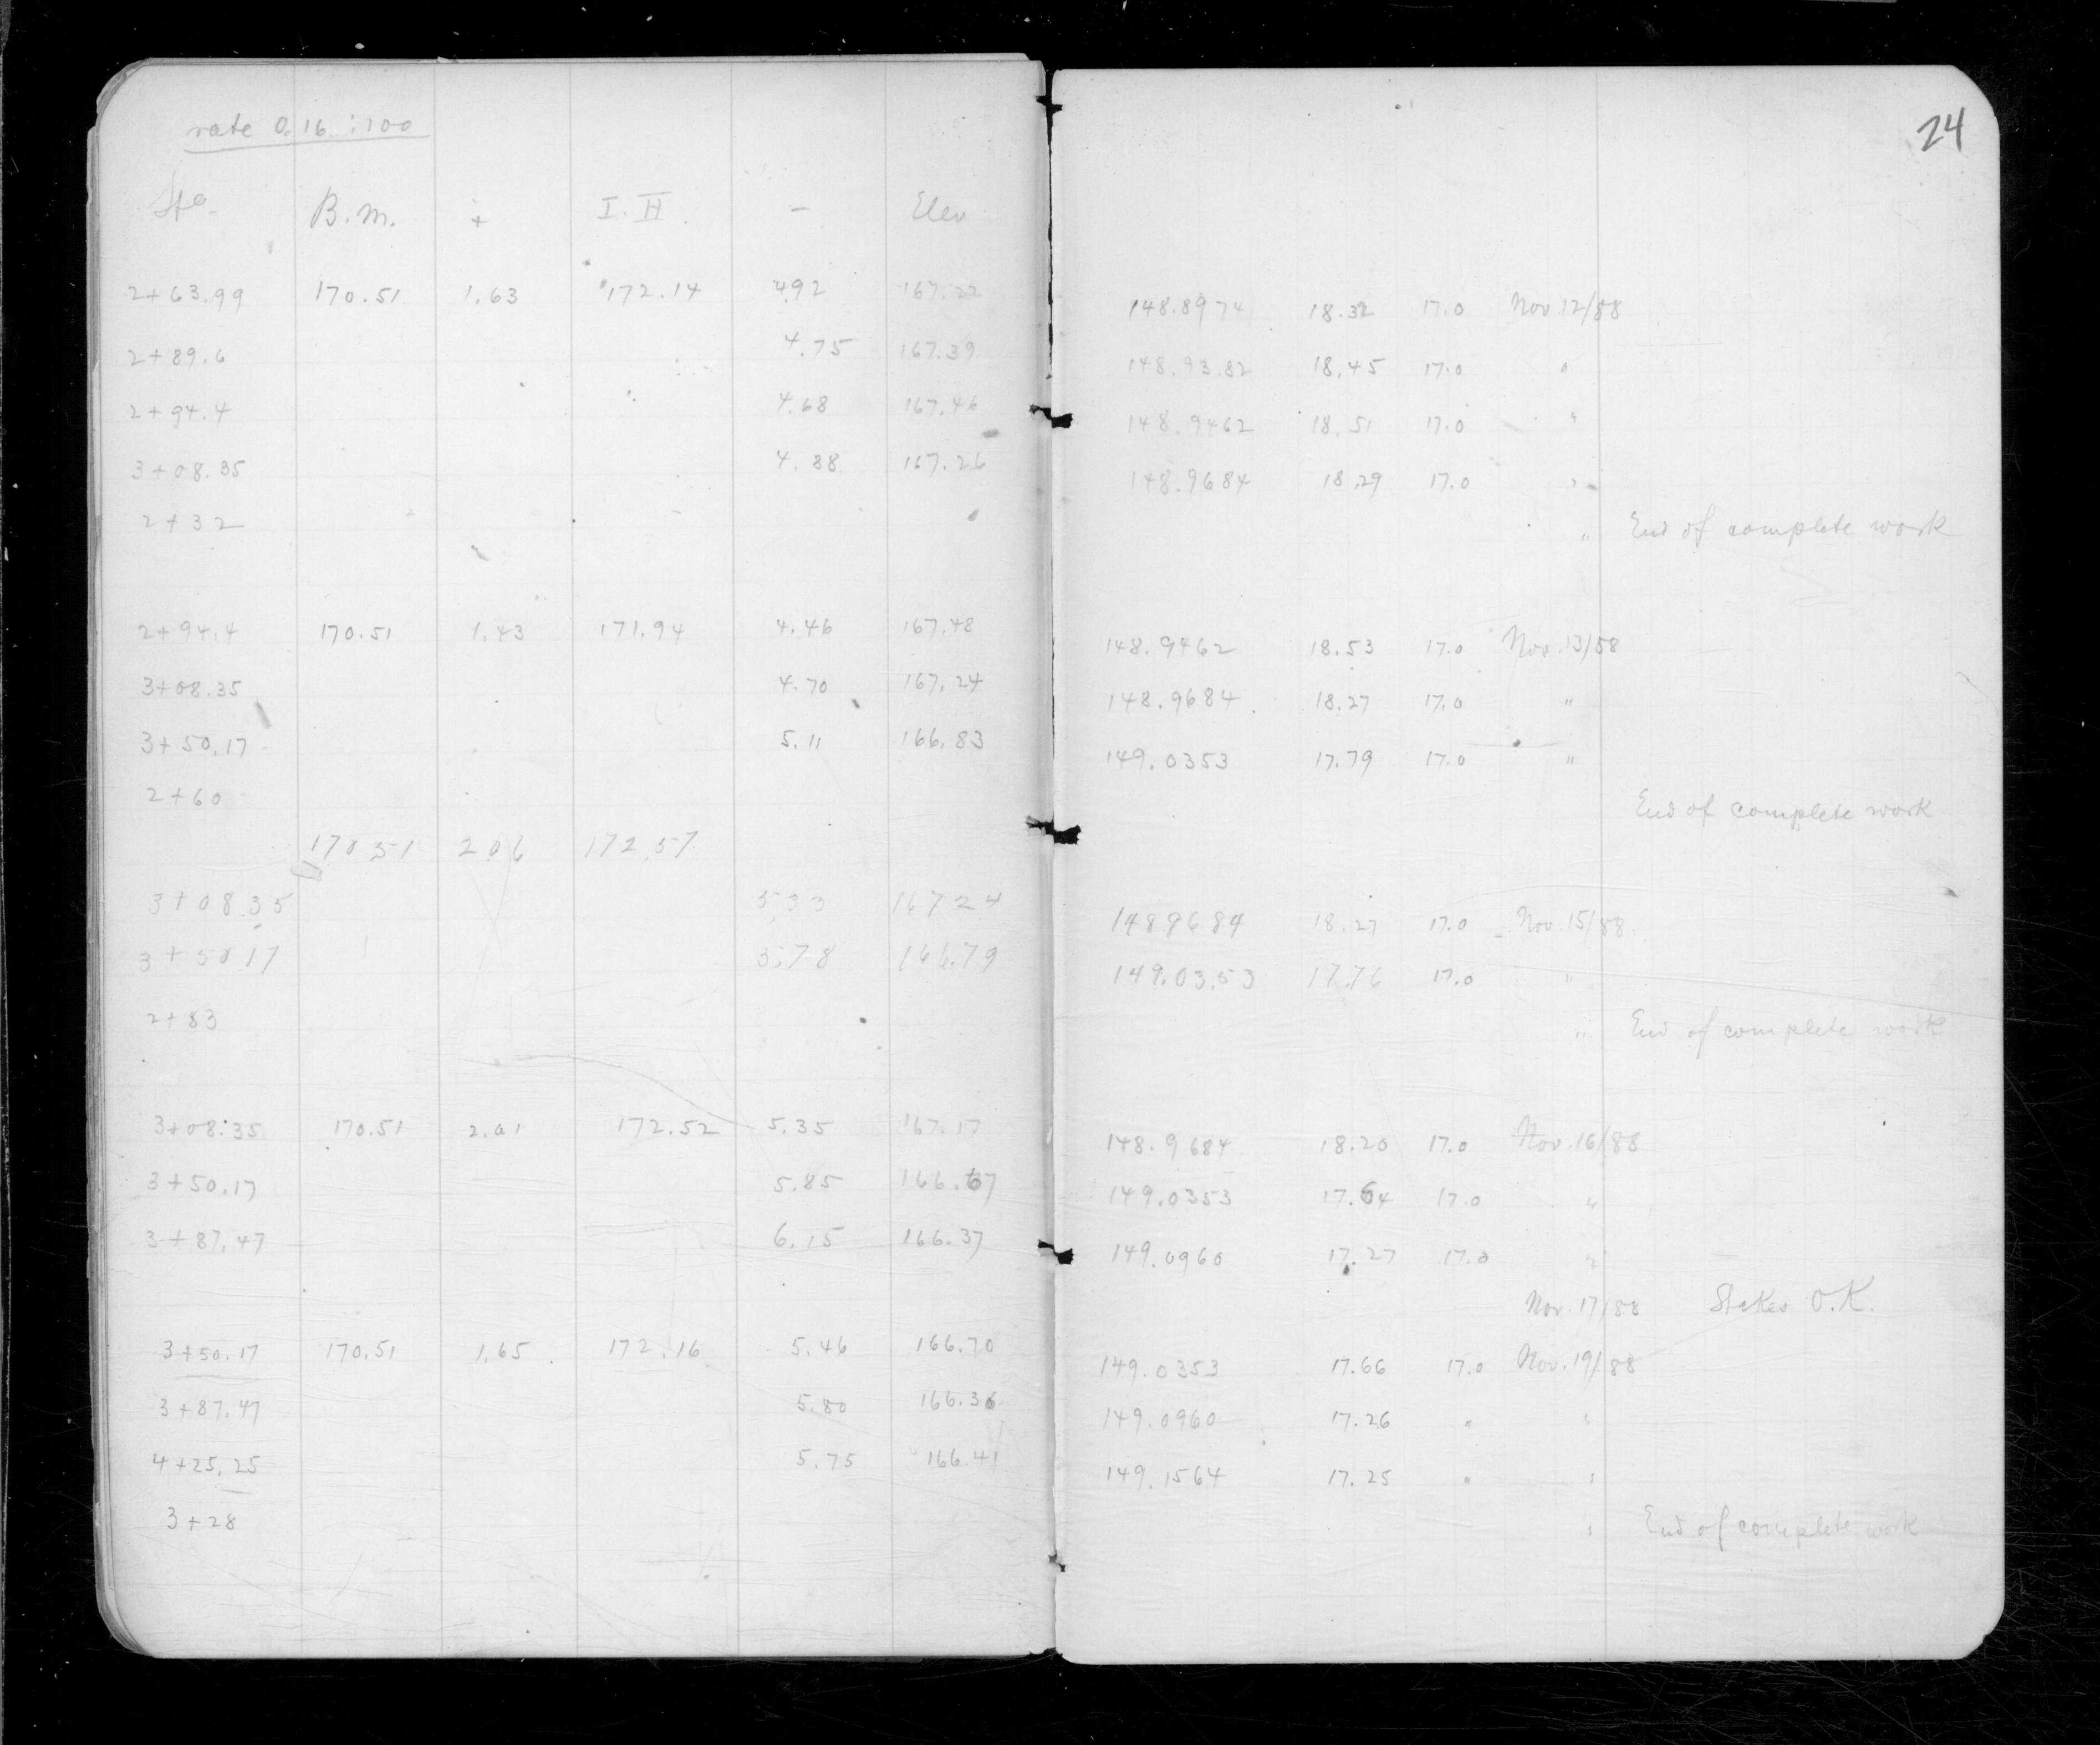 24
rate 0.16 : 100
Sta. B.M. + I.H. - Elev
2+63.99 170.51 1.63 172.14 4.92 167.22 148.8974 18.32 17.0 Nov. 12/88
2+89.6 4.75 167.39 148.93.82 18.45 17.0 "
2+94.4 " 4.68 167.46 148.9462 18.51 17.0 "
3+08.35 4.88 167.26 148.9684 18.29 17.0 "
2+32 " End of complete work
2+94.4 170.51 1.43 171.94 4.46 167.48 148.9462 18.53 17.0 Nov. 13/88
3+08.35 4.70 167.24 148.9684 18.27 17.0 "
3+50.17 5.11 166.83 149.0353 17.79 17.0 "
2+60 End of complete work
170.51 2.06 172.57
3+08.35 5.33 167.24 148.9684 18.27 17.0 Nov. 15/88
3+50.17 5.78 166.79 149.0353 17.76 17.0 "
2+83 " End of complete work
3+08.35 170.51 2.01 172.52 5.35 167.17 148.9684 18.20 17.0 Nov. 16/88
3+50.17 5.85 166.67 149.0353 17.64 17.0 "
3+87.47 6.15 166.37 149.0960 17.27 17.0 "
Nov. 17/88 Stakes O.K.
3+50.17 170.51 1.65 172.16 5.46 166.70 149.0353 17.66 17.0 Nov. 19/88
3+87.47 5.80 166.36 149.0960 17.26 " "
4+25.25 5.75 166.41 149.1564 17.25 " "
3+28 " End of complete work